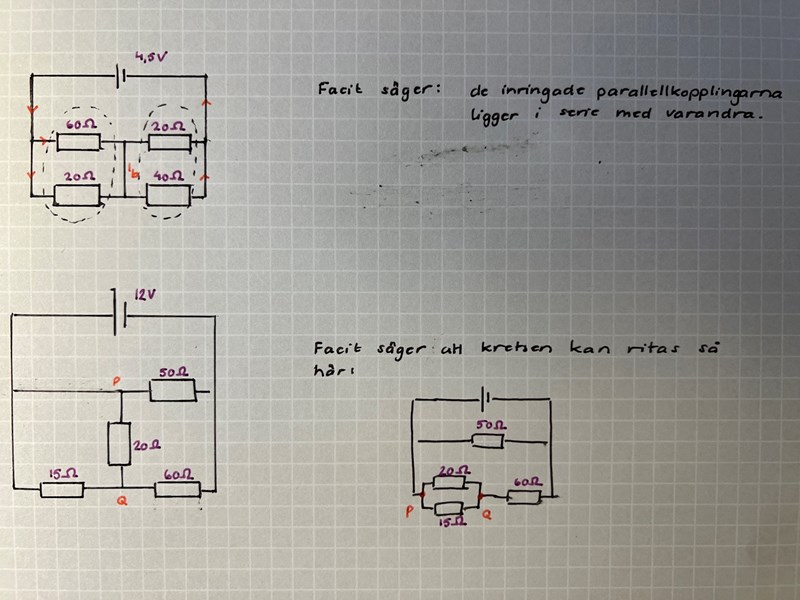 4,5V
Facit säger: de inringade parallellkopplingarna
ligger i serie med varandra.
60Ω
20Ω
20Ω
40Ω
12V
Facit säger att kretsen kan ritas så
här:
P
50Ω
20Ω
15Ω
60Ω
Q
50Ω
20Ω
60Ω
P
Q
15Ω